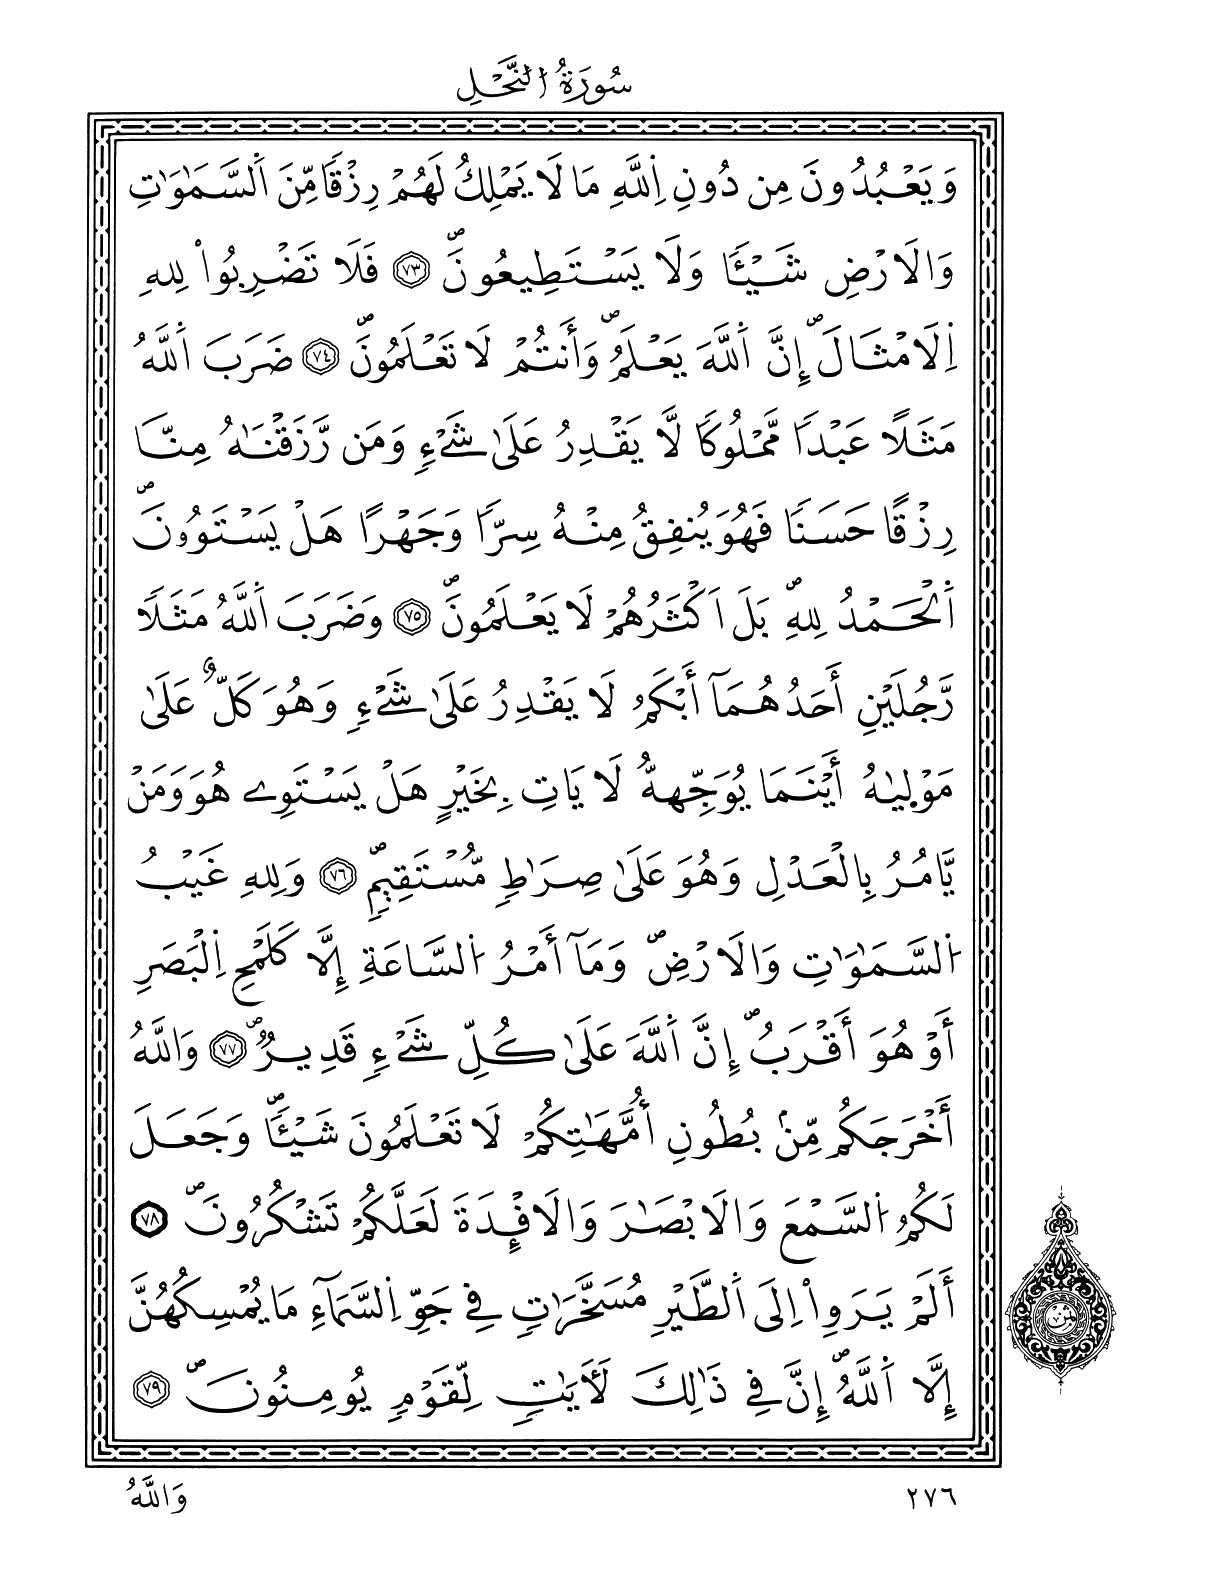 سُورَةُ النَّحْلِ
وَيَعْبُدُونَ مِن دُونِ اِ۬للَّهِ مَا لَا يَمْلِكُ لَهُمْ رِزْقاٗ مِّنَ اَ۬لسَّمَٰوَٰتِ
وَالَارْضِ شَيْـٔاٗ وَلَا يَسْتَطِيعُونَۖ ٧٣ فَلَا تَضْرِبُواْ لِلهِ
اِ۬لَامْثَالَۖ إِنَّ اَ۬للَّهَ يَعْلَمُۖ وَأَنتُمْ لَا تَعْلَمُونَۖ ٧٤ ضَرَبَ اَ۬للَّهُ
مَثَلًا عَبْداٗ مَّمْلُوكاٗ لَّا يَقْدِرُ عَلَىٰ شَےْءٖ وَمَن رَّزَقْنَٰهُ مِنَّا
رِزْقًا حَسَناٗ فَهُوَ يُنفِقُ مِنْهُ سِرّاٗ وَجَهْرًا هَلْ يَسْتَوُۥنَۖ
اَ۬لْحَمْدُ لِلهِۖ بَلَ اَكْثَرُهُمْ لَا يَعْلَمُونَۖ ٧٥ وَضَرَبَ اَ۬للَّهُ مَثَلًا
رَّجُلَيْنِ أَحَدُهُمَآ أَبْكَمُ لَا يَقْدِرُ عَلَىٰ شَےْءٖ وَهُوَ كَلٌّ عَلَىٰ
مَوْلِيٰهُ أَيْنَمَا يُوَجِّههُّ لَا يَاتِ بِخَيْرٍ هَلْ يَسْتَوِے هُوَ وَمَنْ
يَّامُرُ بِالْعَدْلِ وَهُوَ عَلَىٰ صِرَٰطٖ مُّسْتَقِيمٖۖ ٧٦ وَلِلهِ غَيْبُ
اُ۬لسَّمَٰوَٰتِ وَالَارْضِۖ وَمَآ أَمْرُ اُ۬لسَّاعَةِ إِلَّا كَلَمْحِ اِ۬لْبَصَرِ
أَوْ هُوَ أَقْرَبُۖ إِنَّ اَ۬للَّهَ عَلَىٰ كُلِّ شَےْءٖ قَدِيرٌۖ ٧٧ وَاللَّهُ
أَخْرَجَكُم مِّنۢ بُطُونِ أُمَّهَٰتِكُمْ لَا تَعْلَمُونَ شَيْـٔاٗۖ وَجَعَلَ
لَكُمُ اُ۬لسَّمْعَ وَالَابْصَٰرَ وَالَافْـِٕدَةَ لَعَلَّكُمْ تَشْكُرُونَۖ ٧٨
أَلَمْ يَرَوِاْ اِلَى اَ۬لطَّيْرِ مُسَخَّرَٰتٖ فِے جَوِّ اِ۬لسَّمَآءِ مَا يُمْسِكُهُنَّ
إِلَّا اَ۬للَّهُۖ إِنَّ فِے ذَٰلِكَ لَأٓيَٰتٖ لِّقَوْمٖ يُومِنُونَۖ ٧٩
ثمن
وَاللَّهُ
٢٧٦